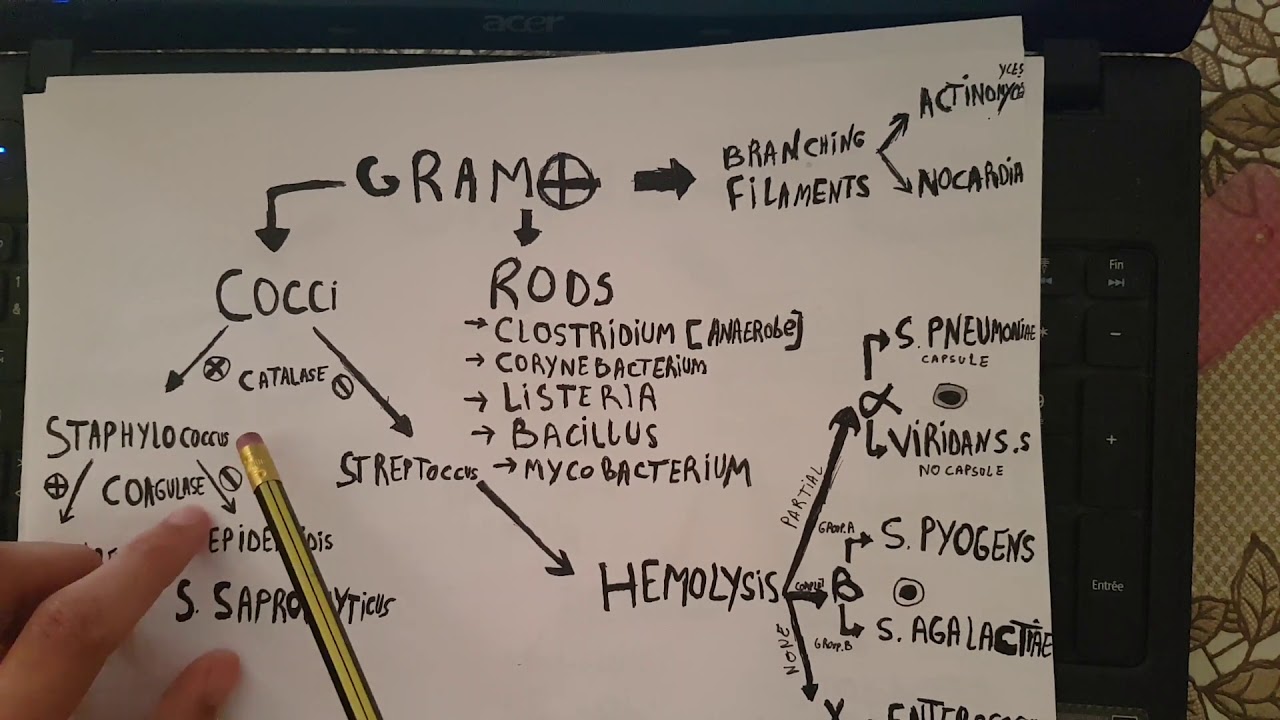 acer
GRAM⊕
BRANCHING
FILAMENTS
YCES
ACTINOMYCE
NOCARDIA
COCCI
CATALASE
STAPHYLOCOCCUS
⊕ COAGULASE
EPIDE
DIS
S. SAPRO
YTICUS
STREPTOCCUS
RODS
→ CLOSTRIDIUM [ANAERObE]
→ CORYNEBACTERIUM
→ LISTERIA
→ BACILLUS
→ MYCOBACTERIUM
HEMOLYSIS
PARTIAL
α
S. PNEUMONIAE
CAPSULE
VIRIDANS.S
NO CAPSULE
B
GROUP.A
S. PYOGENS
GROUP.B
S. AGALACTIAE
NONE
Fin
Entrée